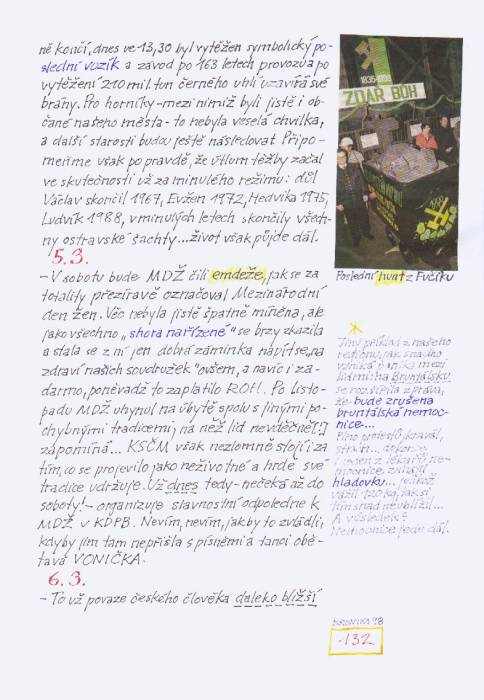 ně končí, dnes ve 13,30 byl vytěžen symbolický po-
slední vozík a závod po 163 letech provozu a po
vytěžení 210 mil. tun černého uhlí uzavírá své
brány. Pro horníky - mezi nimiž byli jistě i ob-
čané našeho města - to nebyla veselá chvilka,
a další starosti budou ještě následovat. Připo-
meňme však po pravdě, že útlum těžby začal
ve skutečnosti už za minulého režimu: důl
Václav skončil 1967, Evžen 1972, Hedvika 1975,
Ludvík 1988, v minulých letech skončily všech-
ny ostravské šachty... život však půjde dál.
5.3.
- V sobotu bude MDŽ čili emdeže, jak se za
totality přezíravě označoval Mezinárodní
den žen. Věc nebyla jistě špatně míněna, ale
jako všechno "shora nařízené" se brzy zkazila
a stala se z ní jen dobrá záminka napít se "na
zdraví našich soudružek" ovšem, a navíc i za-
darmo, poněvadž to zaplatilo ROH. Po listo-
padu MDŽ uhynul na úbytě spolu s jinými po-
chybnými tradicemi, na něž lid nevděčně(!)
zapomíná... KSČM však nezlomně stojí i za
tím, co se projevilo jako neživotné a hrdě své
tradice udržuje. Už dnes tedy - nečeká až do
soboty! - organizuje slavnostní odpoledne k
MDŽ v KDPB. Nevím, nevím, jak by to zvládli,
kdyby jim tam nepřišla s písněmi a tanci obě-
tavá VONIČKA.
6.3.
- To už povaze českého člověka daleko bližší
1835-1998
ZDAŘ BŮH
Poslední hunt z Fučíku
Jiný příklad z našeho
regionu, jak snadno
vzniká panika mezi
lidmi: na Bruntálsku
se rozšířila zpráva,
že bude zrušena
bruntálská nemoc-
nice...
Plno protestů,
dokonce
jeden z lékařů ne-
mocnice zahájil
hladovku...
A výsledek?
Nemocnice jede dál.
KRONIKA 98
-132